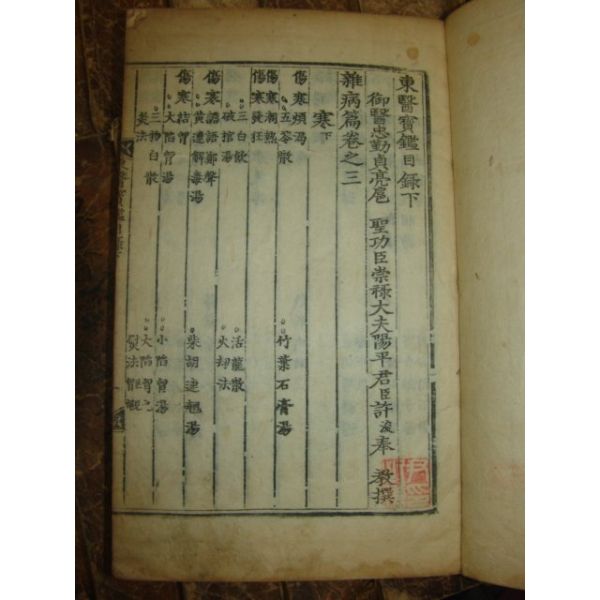 東醫寶鑑目錄下
御醫忠勤貞亮扈 聖功臣崇祿大夫陽平君臣許浚奉 教撰
雜病篇卷之三
寒下
傷寒煩渴
五苓散 竹葉石膏湯
傷寒潮熱
傷寒發狂
三白飲 活龍散
破棺湯 火刼法
傷寒譫語鄭聲
黃連解毒湯 柴胡連翹湯
傷寒結胷
大陷胷湯 小陷胷湯
三物白散 大陷胷丸
熨法